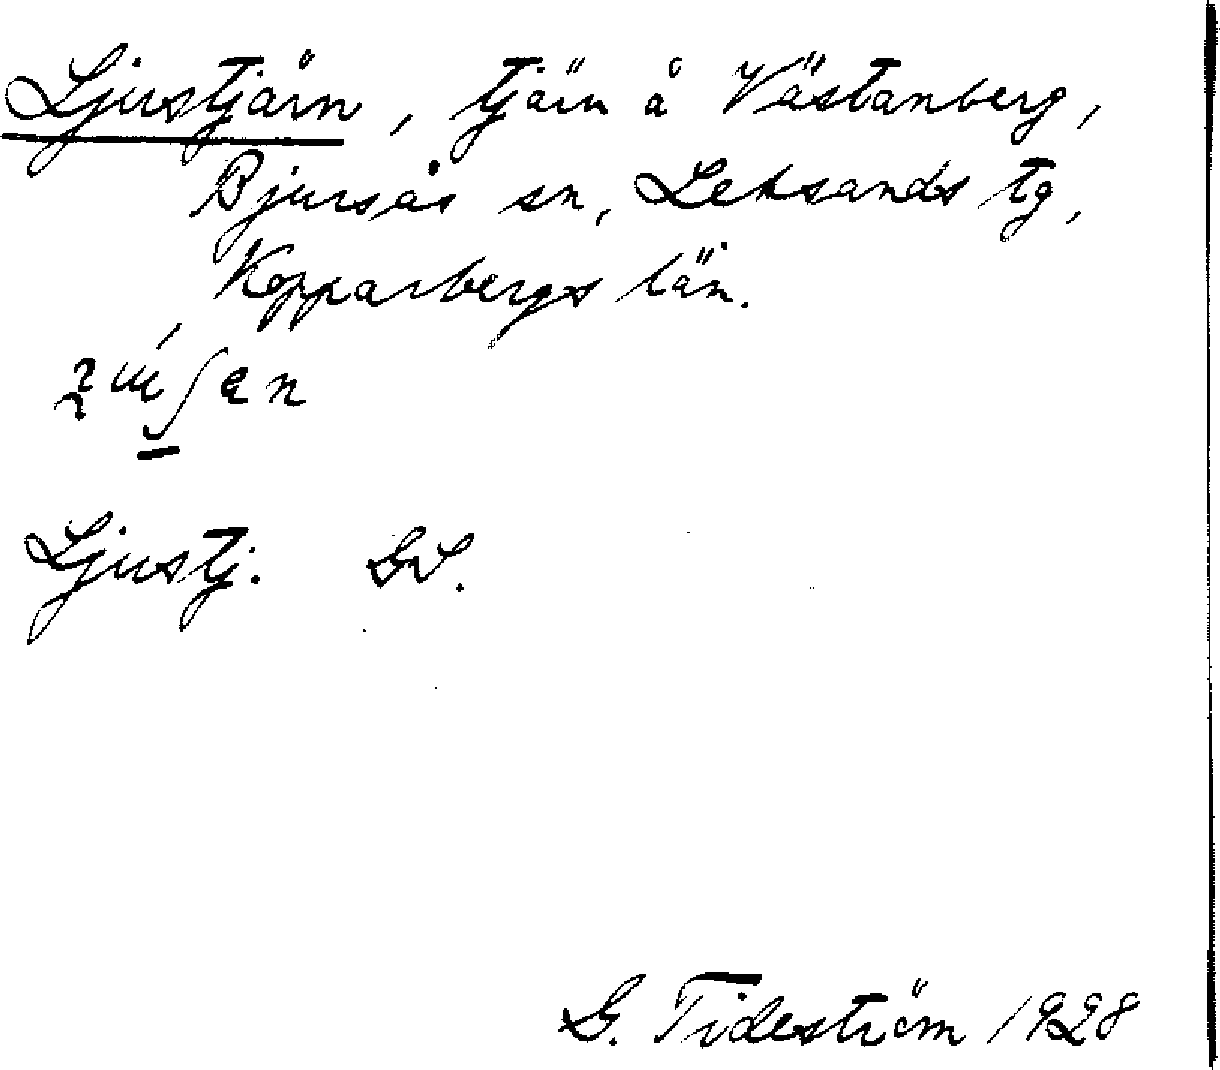 Ljustjärn, tjärn å Västanberg,
Bjursås sn, Leksands tg,
Kopparbergs län.
Ljustj. GV.
G. Tideström 1928